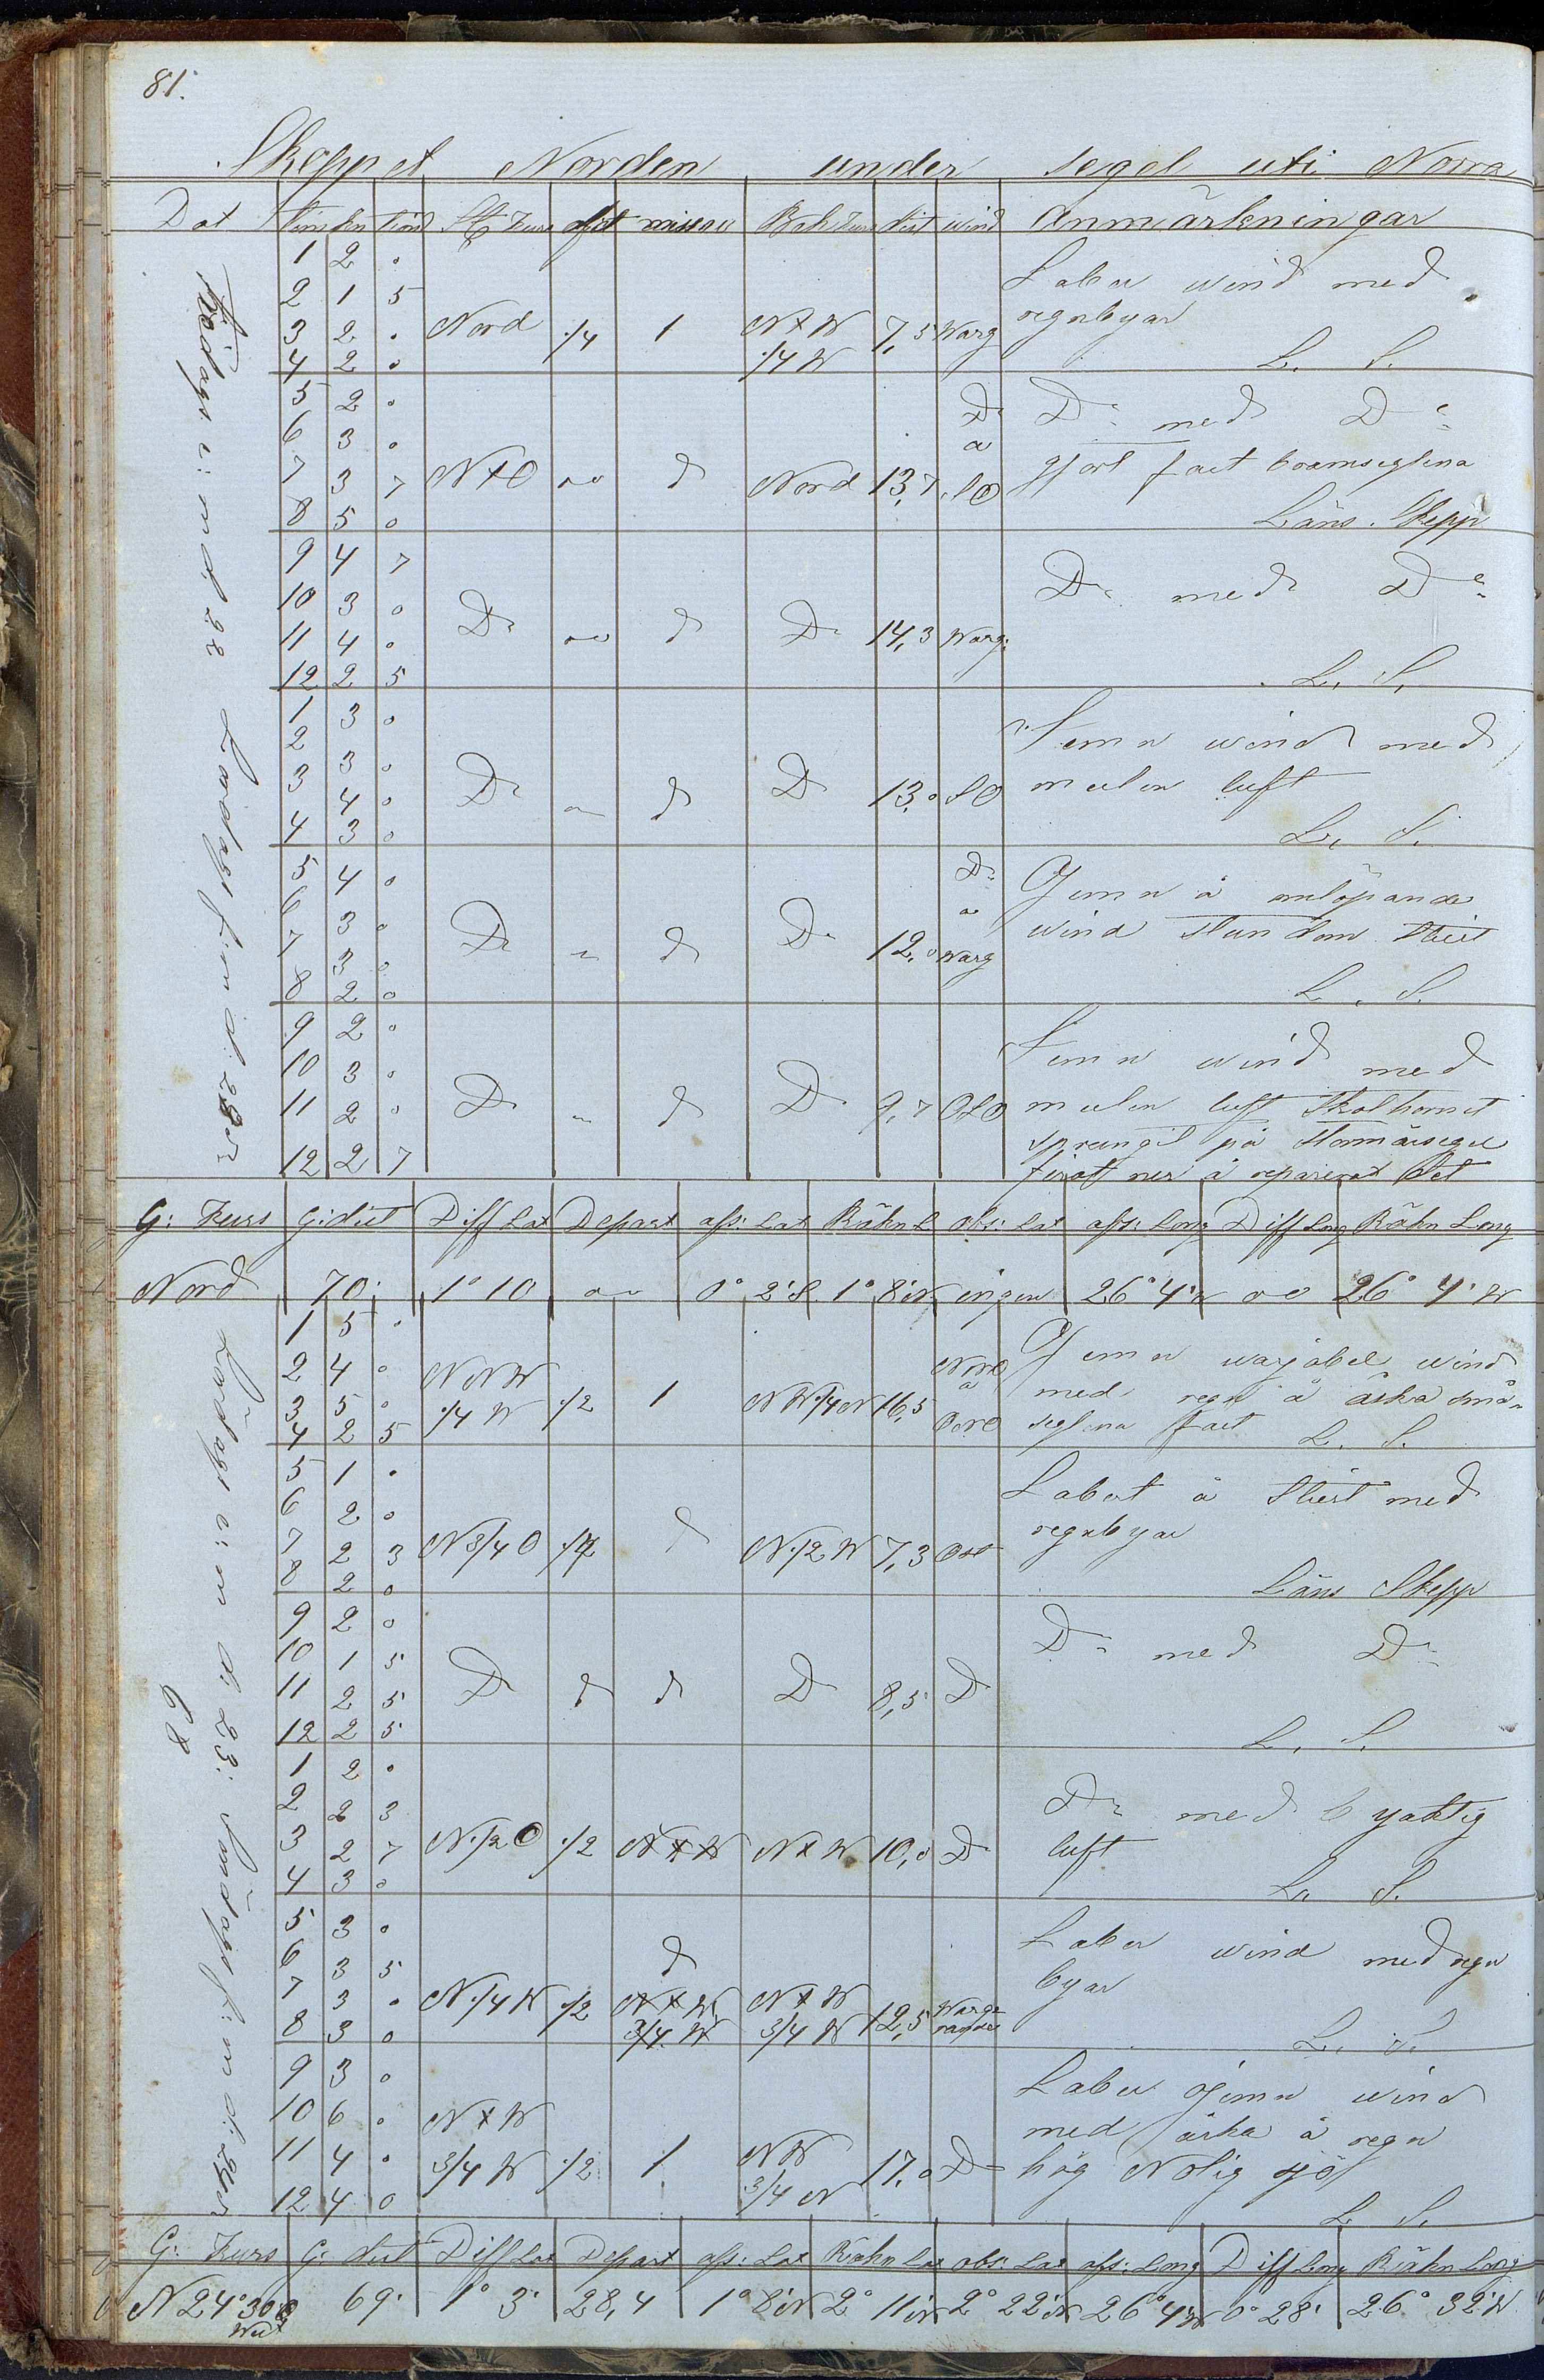 81.
Skeppet Norden under segel uti Norra
Dat Tim kn tiond St Kurs afd missv Beh Kurs dist wind Anmärkningar
Fredags e: m d: 22 Lördags f: m d: 23
1 2 0 Laber wind med
2 1 5 regnbyar
3 2 0 Nord 1/4 1 N x W 7,5 Warg
4 2 0 1/4 W L. S.
5 2 0 Do Do med Do
6 3 0 a
7 3 7 N x O d Nord 13,7 SO gjort fast bramseglena
8 5 0 Läns Skepp
9 4 7
10 3 0 Do med Do
11 4 0 Do d Do 14,3 Warg:
12 2 5 L. S.
1 3 0
2 3 0 Jemn wind med
3 4 0 D d D 13,0 SO mulen luft
4 3 0 L. S.
5 4 0 Do Ojemn å omlöpande
6 3 0 wind stundom stiltt
7 3 0 D d D 12,0 Warg
8 2 0 L. S.
9 2 0 Jemn wind med
10 3 0
11 2 0 D d D 9,7 OSO mulen luft Skothornet
sprungit på Stormärsegel
12 2 7 firat ner å reparerad det
G: Kurs G: dist Diff Lat Depart aff: Lat Räkn L obs: Lat aff: Long Diff Long Räkn Long
Nord 70' 1° 10 0° 2' S. 1° 8' N ingen 26° 4' W 26° 4' W
Lördags e: m d: 23: Söndags f: m d: 24
68
1 5 0 Ojemn warjabel wind
2 4 0 NNW
3 5 0 1/4 W 1/2 1 NW 1/4 N 16,5 med regn å åska små-
4 2 5 ONO seglena fast L. S.
5 1 0 Labert å Stilt med
6 2 0 regnbyar
7 2 3 N 3/4 O 1/2 d N 1/2 W 7,3 Ost
8 2 0 Läns Skepp
9 2 0
10 1 5 Do med Do
11 2 5 D d d D 8,5 D
12 2 5 L. S.
1 2 0
2 2 3 Do med byaktig
3 2 7 N 1/2 O 1/2 N x W N x W 10,0 D luft
4 3 0 L. S.
5 3 0 Laber wind med regn
6 3 5 d byar
7 3 0 N 1/4 W 1/2 N x W N x W
8 3 0 3/4 W 3/4 W 12,5 L. S.
9 3 0 Laber ojemn wind
10 6 0 N x W med åska å regn
11 4 0 3/4 W 1/2 1 NW 17,0 D hög Nolig sjö
12 4 0 3/4 N L. S.
G: Kurs G: dist Diff Lat Depart aff: Lat Räkn Lat obs: Lat aff: Long Diff Long Räkn Long
N 24° 30' 69' 1° 3' 28,4 1° 8' N 2° 11' N 2° 22' N 26° 4' W 0° 28' 26° 32' W
West